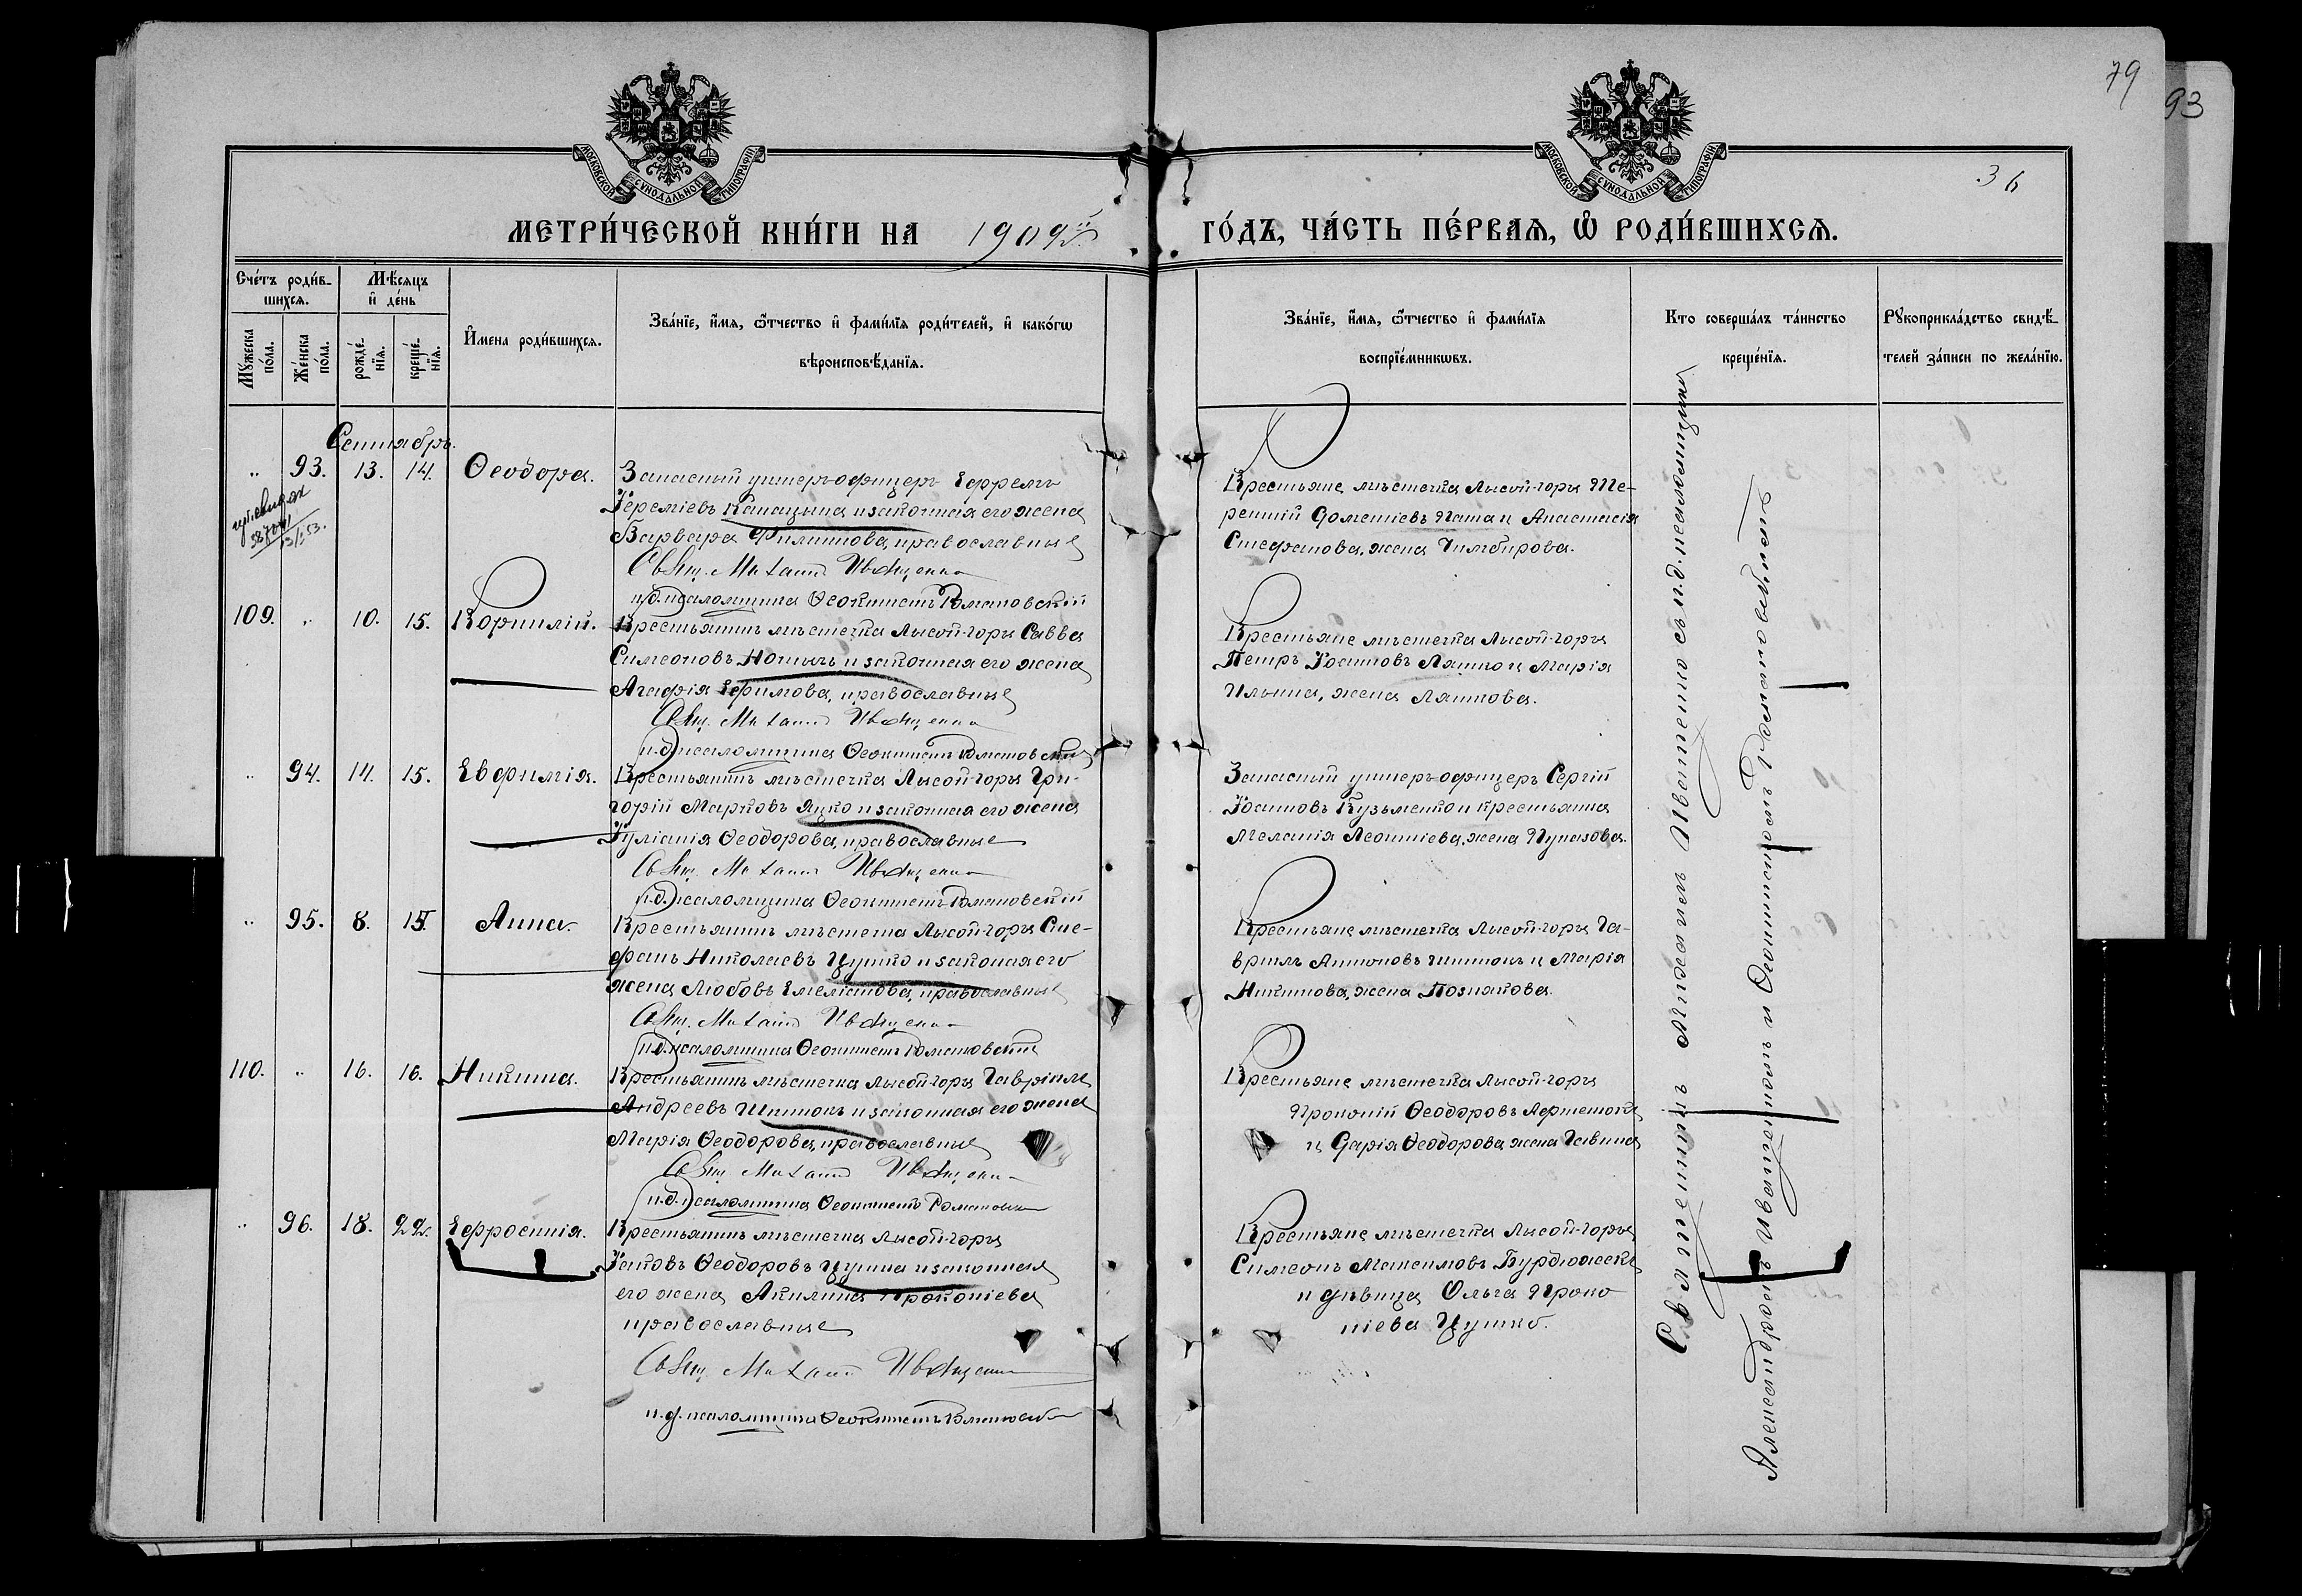 79
93
36
МОСКОВСКОЙ СѴНОДАЛЬНОЙ ТИПОГРАФІИ
МОСКОВСКОЙ СѴНОДАЛЬНОЙ ТИПОГРАФІИ
МЕТРИ́ЧЕСКОЙ КНИ́ГИ НА 1909й
ГО́ДЪ, ЧА́СТЬ ПЕ́РВАѦ, Ѡ РОДИ́ВШИХСѦ.
Сче́тъ роди́в-
шихсѧ.
Мѣ́сѧцъ
и де́нь
Мꙋ́жеска
по́ла.
Же́нска
по́ла.
рожде́-
нїѧ.
креще́-
нїѧ.
И́мена роди́вшихсѧ.
Зва́нїе, и́мѧ, ѻ́тчество и фами́лїѧ роди́телей, и како́гѡ
вѣроисповѣ́данїѧ.
Зва́нїе, и́мѧ, ѻ́тчество и фами́лїѧ
воспрїе́мникѡвъ.
Кто соверша́лъ та́инство
креще́нїѧ.
Рꙋкоприкла́дство свидѣ́-
телей за́писи по жела́нїю.
Сентябрь.
" 93. 13. 14. Ѳеодора.
Запасный унтеръ-офицеръ Ефремъ
Іереміевъ Канацына и законная его жена
Варвара Филиппова, православные
Свящ. Михаилъ Иващенко
и.д. псаломщика Ѳеоктистъ Романовскій
Крестьяне мѣстечка Лысой-горы Те-
рентій Дометіевъ Паша и Анастасія
Стефанова, жена Чимбирова.
109. " 10. 15. Корнилій.
Крестьянинъ мѣстечка Лысой-горы Савва
Симеоновъ Нотычъ и законная его жена
Агафія Ефимова, православные
Свящ. Михаилъ Иващенко
и.д. псаломщика Ѳеоктистъ Романовскій
Крестьяне мѣстечка Лысой-горы
Петръ Іоанновъ Ляшко и Марія
Ильина, жена Ляшкова.
" 94. 14. 15. Евфимія.
Крестьянинъ мѣстечка Лысой-горы Гри-
горій Марковъ Яцко и законная его жена
Іуліанія Ѳеодорова, православные
Свящ. Михаилъ Иващенко
и.д. псаломщика Ѳеоктистъ Романовскій
Запасный унтеръ-офицеръ Сергій
Іоанновъ Кузьменко и крестьянка
Меланія Леонтіева, жена Пугазова.
" 95. 8. 15. Анна.
Крестьянинъ мѣстечка Лысой-горы Сте-
фанъ Николаевъ Цушко и законная его
жена Любовь Емеліанова, православные
Свящ. Михаилъ Иващенко
и.д. псаломщика Ѳеоктистъ Романовскій
Крестьяне мѣстечка Лысой-горы Га-
вріилъ Антоновъ Шипокъ и Марія
Никитова, жена Познякова.
110. " 16. 16. Никита.
Крестьянинъ мѣстечка Лысой-горы Гавріилъ
Андреевъ Шипокъ и законная его жена
Марія Ѳеодорова, православные
Свящ. Михаилъ Иващенко
и.д. псаломщика Ѳеоктистъ Романовскій
Крестьяне мѣстечка Лысой-горы
Прокопій Ѳеодоровъ
и Дарія Ѳеодорова жена
" 96. 18. 22. Ефросинія.
Крестьянинъ мѣстечка Лысой-горы
Іаковъ Ѳеодоровъ Цушка и законная
его жена Акилина Прокопіева
православные
Свящ. Михаилъ Иващенко
и.д. псаломщика Ѳеоктистъ Романовскій
Крестьяне мѣстечка Лысой-горы
Симеонъ Максимовъ Бурдюжекъ
и дѣвица Ольга Проко
піева Цушко.
Священникъ Михаилъ Иващенко съ и.д. псаломщика
Александромъ Иващенкомъ и Ѳеоктистомъ Романовскимъ